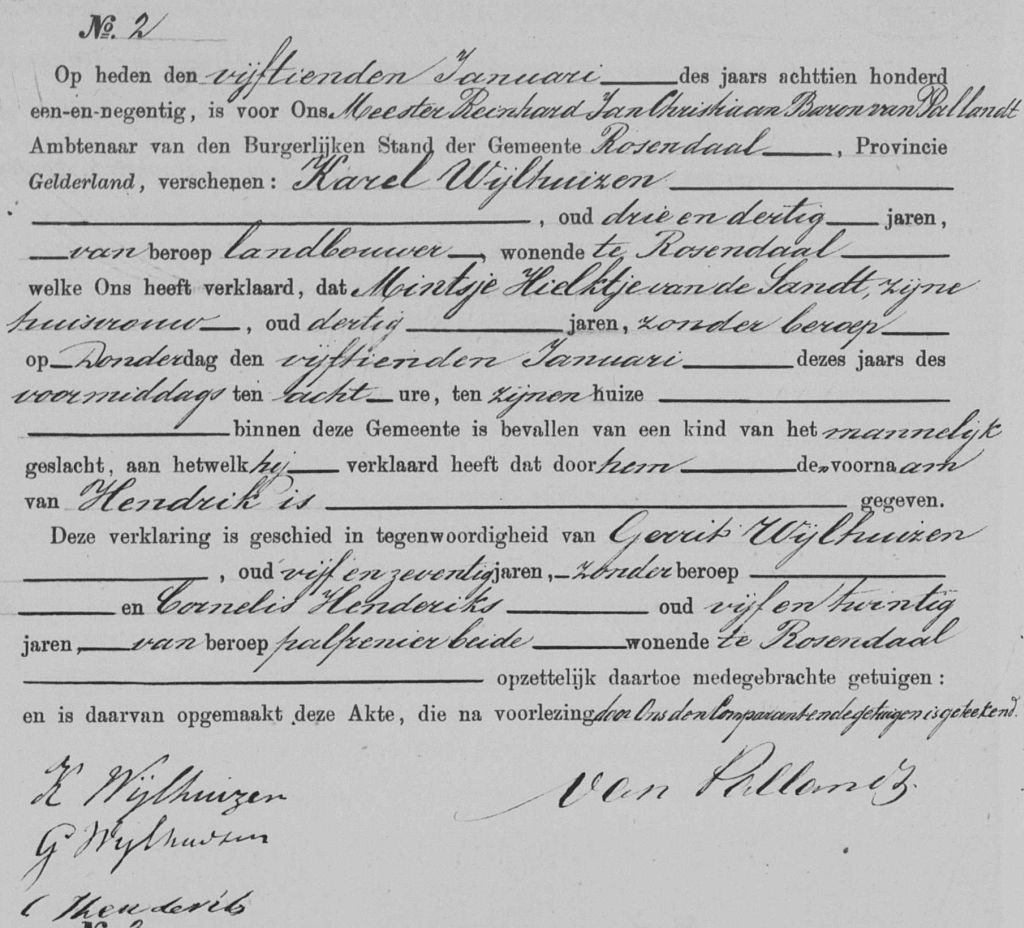 No. 2
Op heden den vijftienden Januari des jaars achttien honderd
een-en-negentig, is voor Ons Meester Reinhard Jan Christiaan Baron van Pallandt
Ambtenaar van den Burgerlijken Stand der Gemeente Rosendaal, Provincie
Gelderland, verschenen: Karel Wijlhuizen
, oud drie en dertig jaren,
van beroep landbouwer, wonende te Rosendaal
welke Ons heeft verklaard, dat Mintsje Hielktje van de Sandt, zijne
huisvrouw, oud dertig jaren, zonder beroep
op Donderdag den vijftienden Januari dezes jaars des
voormiddags ten acht ure, ten zijnen huize
binnen deze Gemeente is bevallen van een kind van het mannelijk
geslacht, aan hetwelk hij verklaard heeft dat door hem de voornaam
van Hendrik is gegeven.
Deze verklaring is geschied in tegenwoordigheid van Gerrit Wijlhuizen
, oud vijf en zeventig jaren, zonder beroep
en Cornelis Henderiks oud vijf en twintig
jaren, van beroep palfrenier beide wonende te Rosendaal
opzettelijk daartoe medegebrachte getuigen:
en is daarvan opgemaakt deze Akte, die na voorlezing door Ons den Comparant en de getuigen is geteekend.
K Wijlhuizen van Pallandt.
G Wijlhuizen
C Henderiks